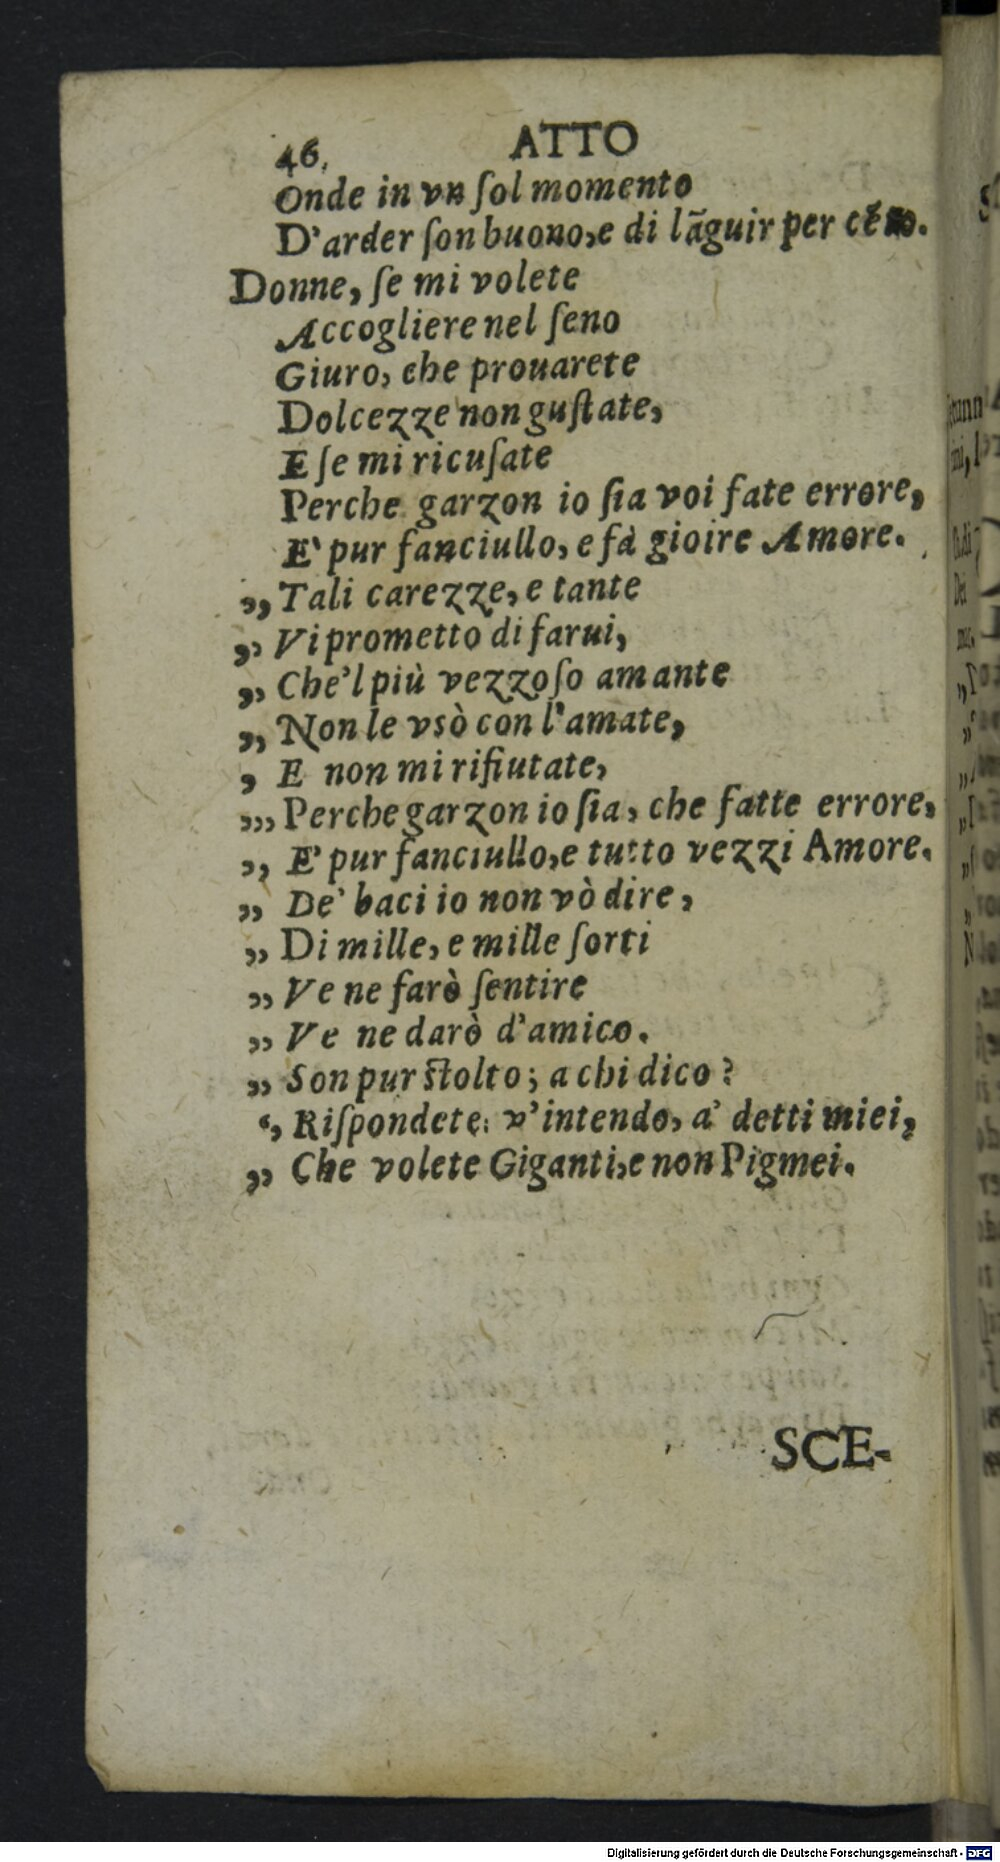 46. ATTO
Onde in vn ſol momento
D'arder ſon buono, e di lãguir per cẽto.
Donne, ſe mi volete
Accogliere nel ſeno
Giuro, che prouarete
Dolcezze non guſtate,
E ſe mi ricuſate
Perche garzon io ſia voi fate errore,
E' pur fanciullo, e fà gioire Amore.
,, Tali carezze, e tante
,, Vi prometto di farui,
,, Che'l più vezzoſo amante
,, Non le vsò con l'amate,
, E non mi rifiutate,
,,, Perche garzon io ſia, che fatte errore,
,, E' pur fanciullo, e tutto vezzi Amore.
,, De' baci io non vò dire,
,, Di mille, e mille ſorti
,, Ve ne farò ſentire
,, Ve ne darò d'amico.
,, Son pur ſtolto; a chi dico?
‘, Riſpondete: v'intendo, a' detti miei,
,, Che volete Giganti, e non Pigmei.
SCE-
Digitalisierung gefördert durch die Deutsche Forschungsgemeinschaft - DFG